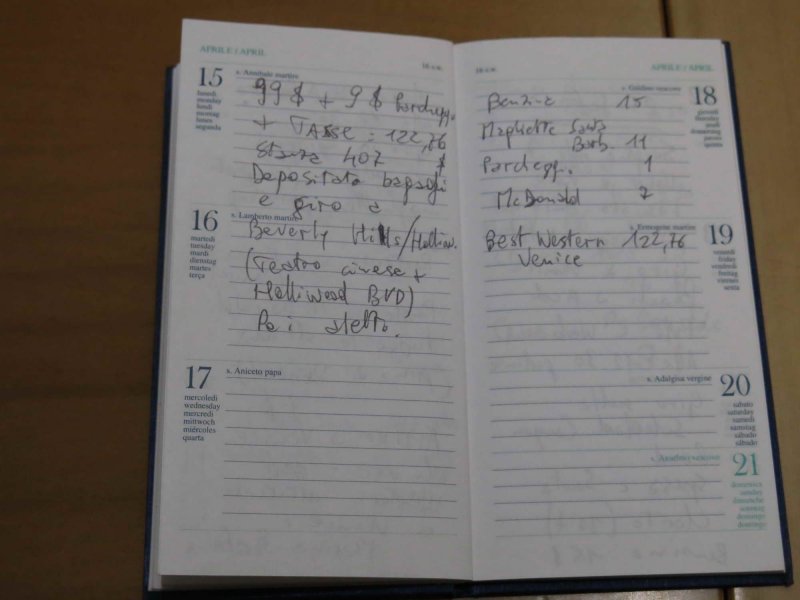 APRILE / APRIL
16 s.w.
15
lunedì
monday
lundi
montag
lunes
segunda
s. Annibale martire
99 $ + 9 $ Parchegg.
+ TASSE = 122,76
$
Stanza 407
Depositato bagagli
e giro a
16
martedì
tuesday
mardi
dienstag
martes
terça
s. Lamberto martire
Beverly Hills/Holliw.
(Teatro cinese +
Holliwood BVD)
Poi a letto.
17
mercoledì
wednesday
mercredi
mittwoch
miércoles
quarta
s. Aniceto papa
16 s.w.
APRILE / APRIL
s. Galdino vescovo
18
giovedì
thursday
jeudi
donnerstag
jueves
quinta
Benzina 15
Magliette Santa
Barb. 11
Parchegg. 1
McDonald 7
s. Ermogene martire
19
venerdì
friday
vendredi
freitag
viernes
sexta
Best Western 122,76
Venice
s. Adalgisa vergine
20
sabato
saturday
samedi
samstag
sábado
sábado
s. Anselmo vescovo
21
domenica
sunday
dimanche
sonntag
domingo
domingo